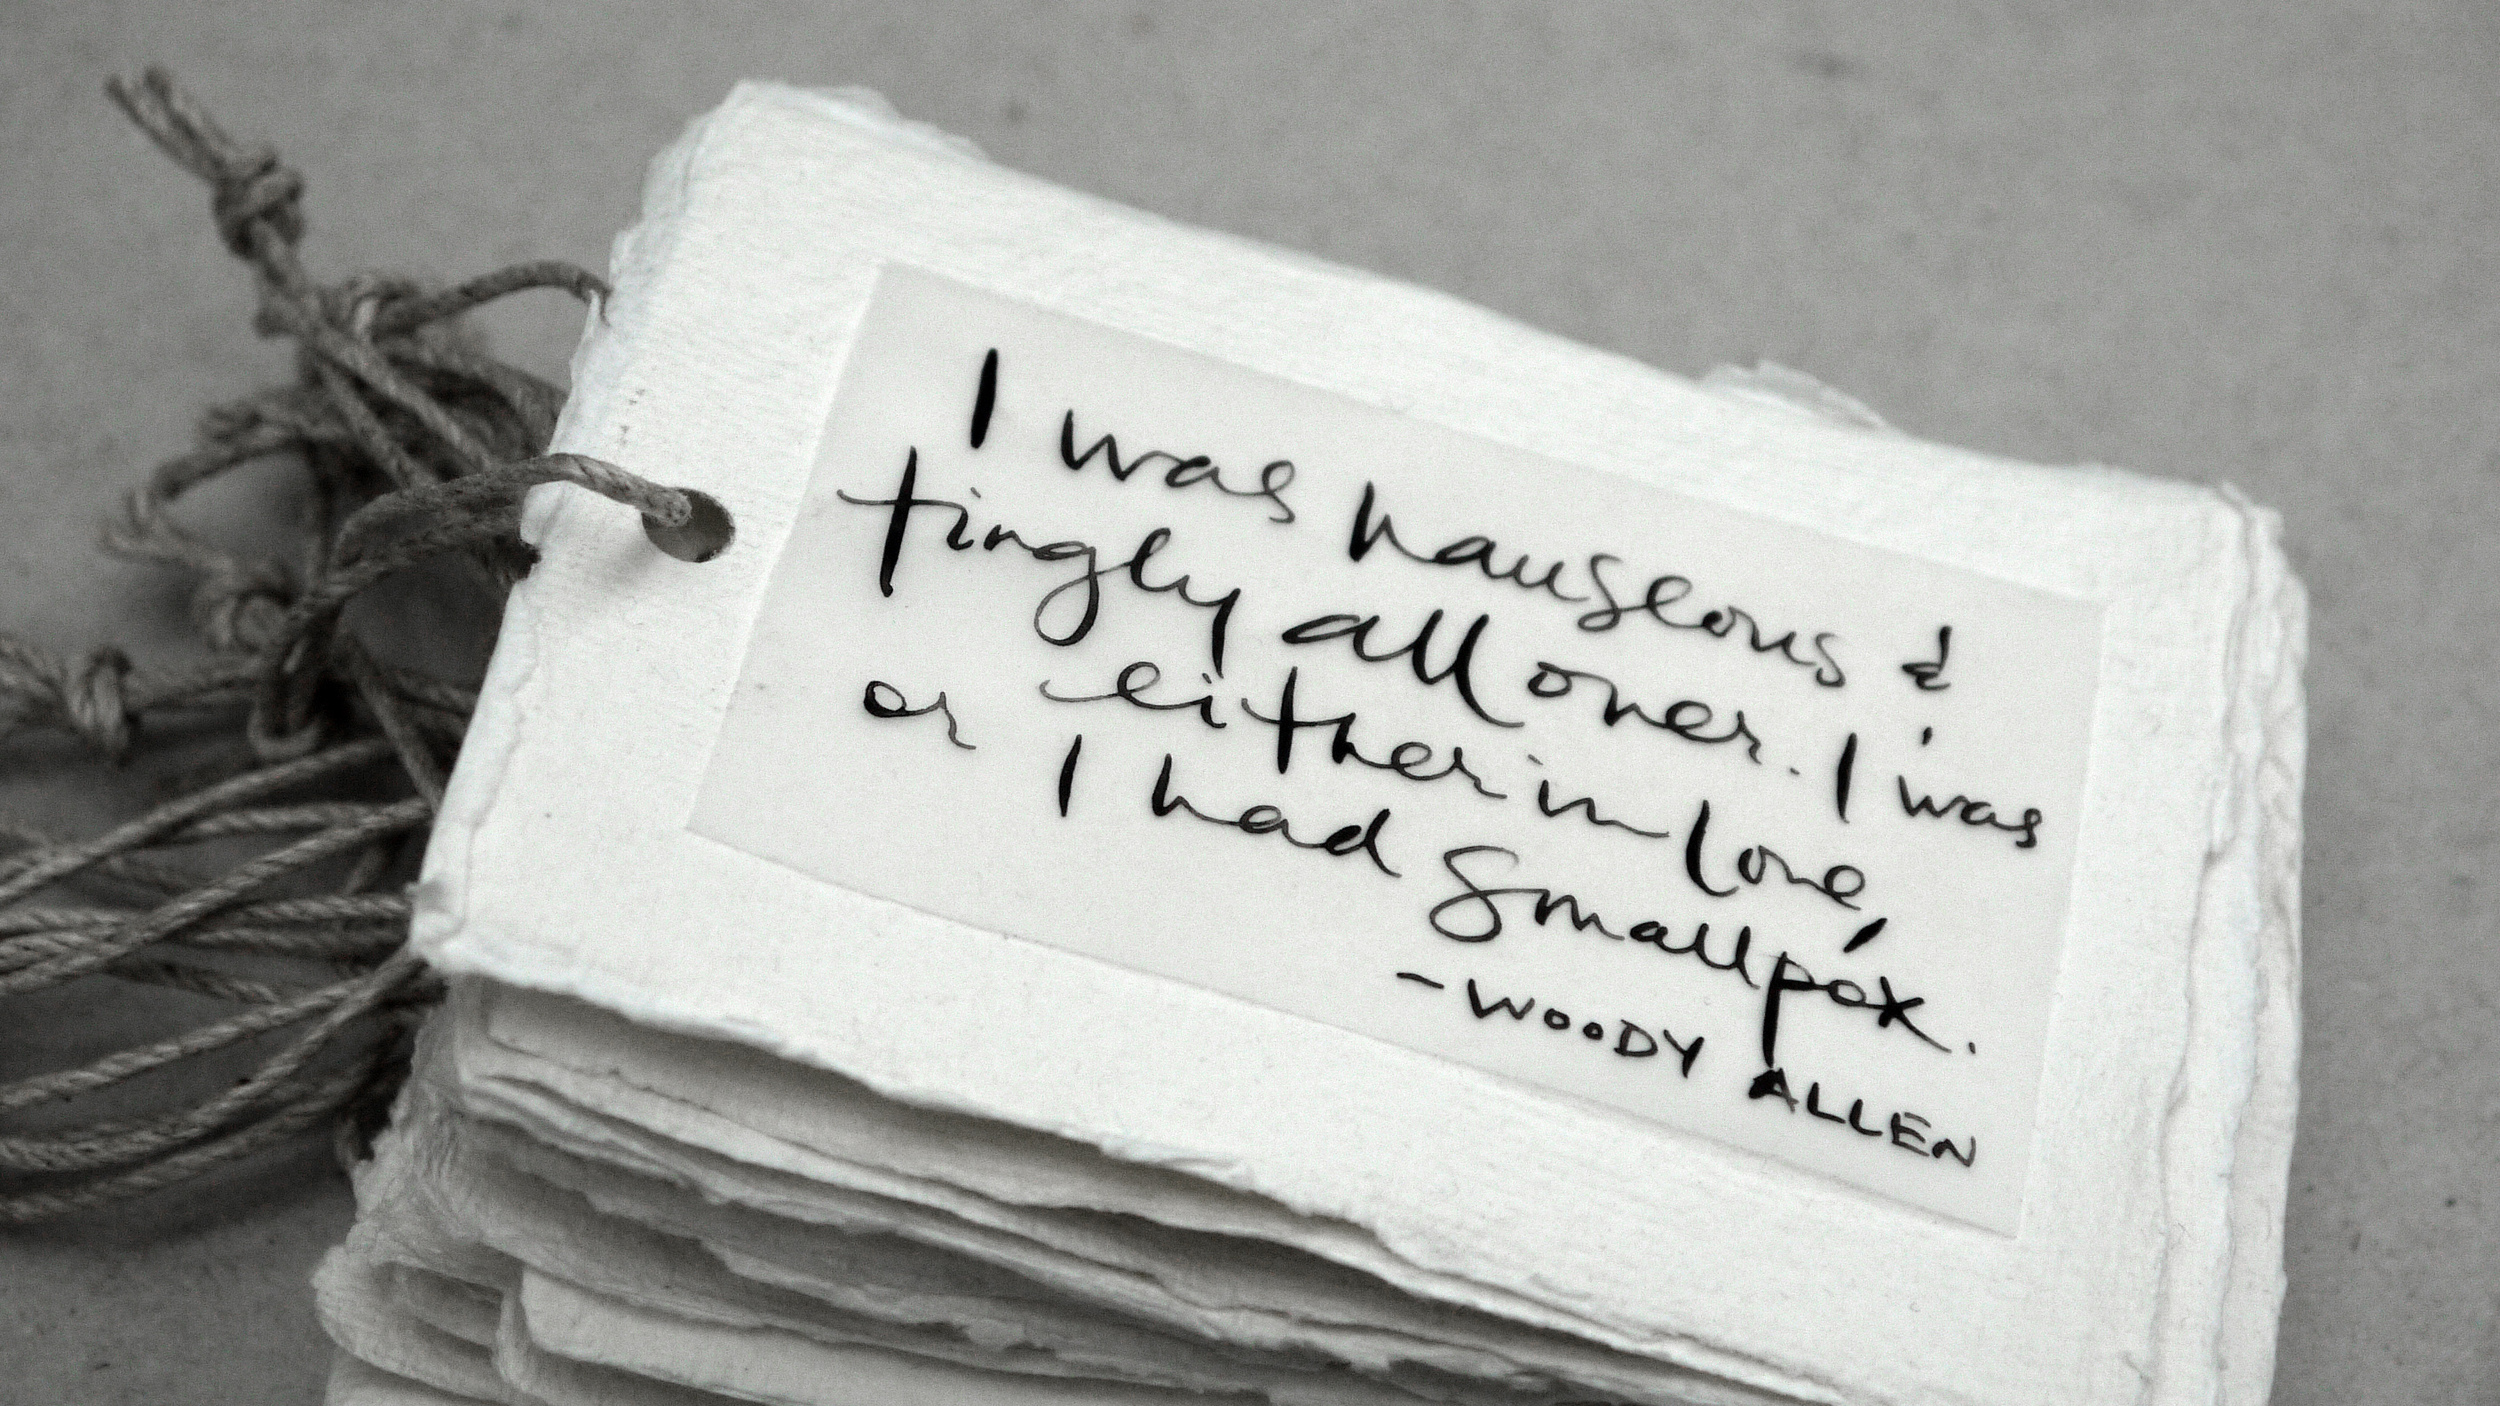 I was nauseous &
tingly all over. I was
either in love,
or I had smallpox.
-WOODY ALLEN